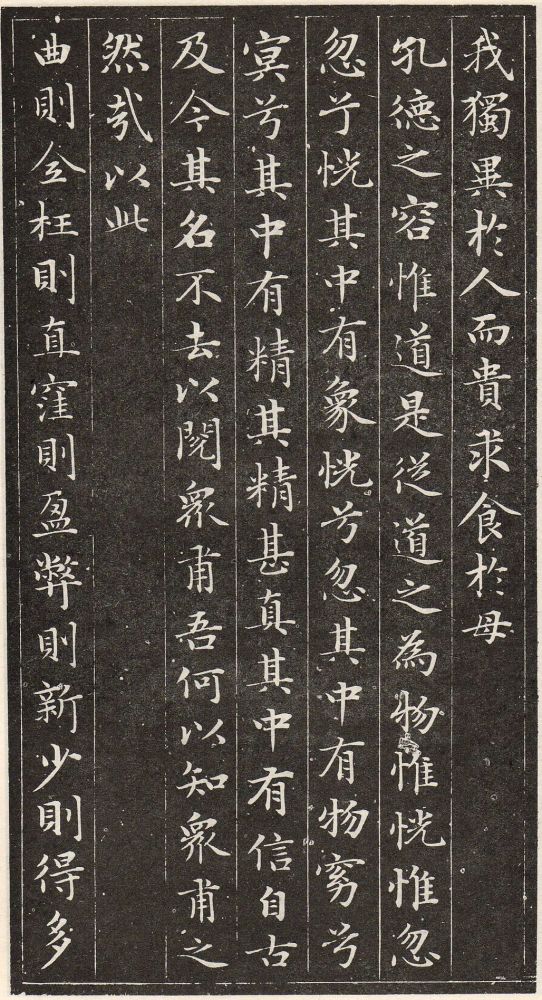 我獨異於人而貴求食於母
孔德之容惟道是從道之為物惟恍惟忽
忽兮恍其中有象恍兮忽其中有物窈兮
冥兮其中有精其精甚真其中有信自古
及今其名不去以閱眾甫吾何以知眾甫之
然哉以此
曲則全枉則直窪則盈弊則新少則得多